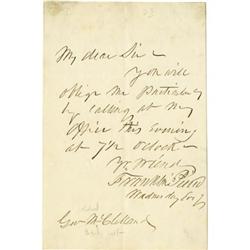 My dear Sir
You will
oblige me particularly
by calling at my
office this evening
at 7½ oclock
Yr friend
Franklin Pierce
Wednesday Evg
Gov McClelland